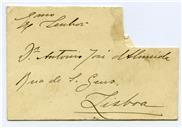 Exmo
Senhor
Dr. Antonio José d'Almeida
Rua de S.
Lisboa